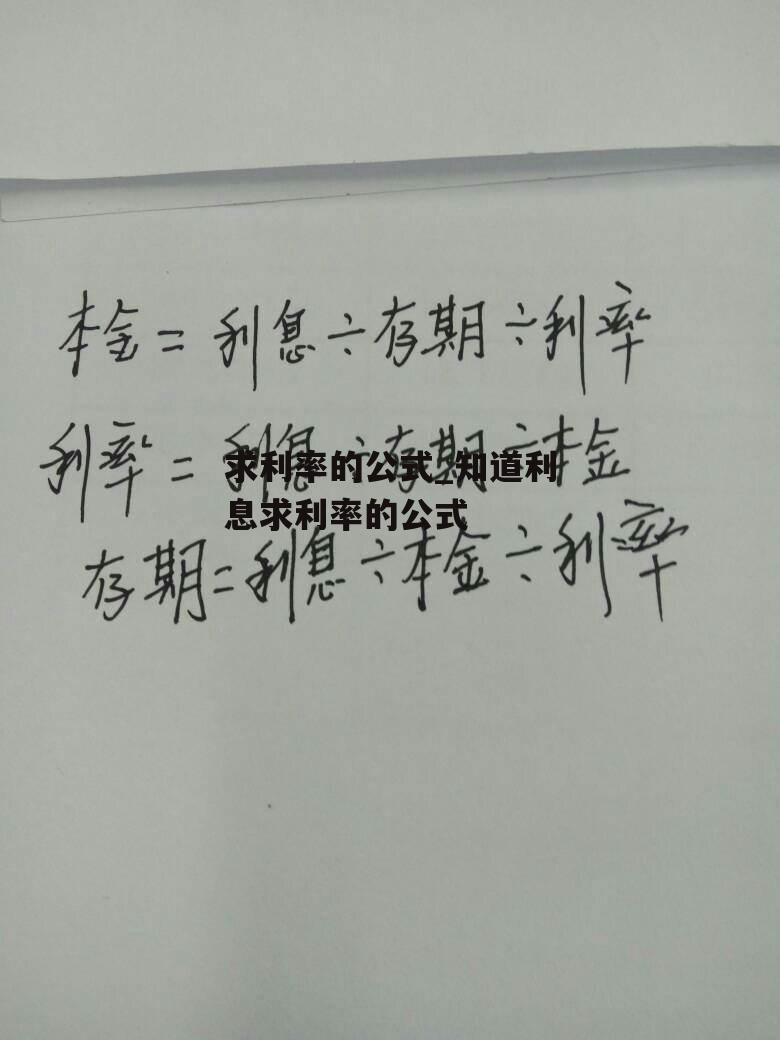 本金=利息÷存期÷利率
利率=利息÷存期÷本金
求利率的公式_知道利
息求利率的公式
存期=利息÷本金÷利率